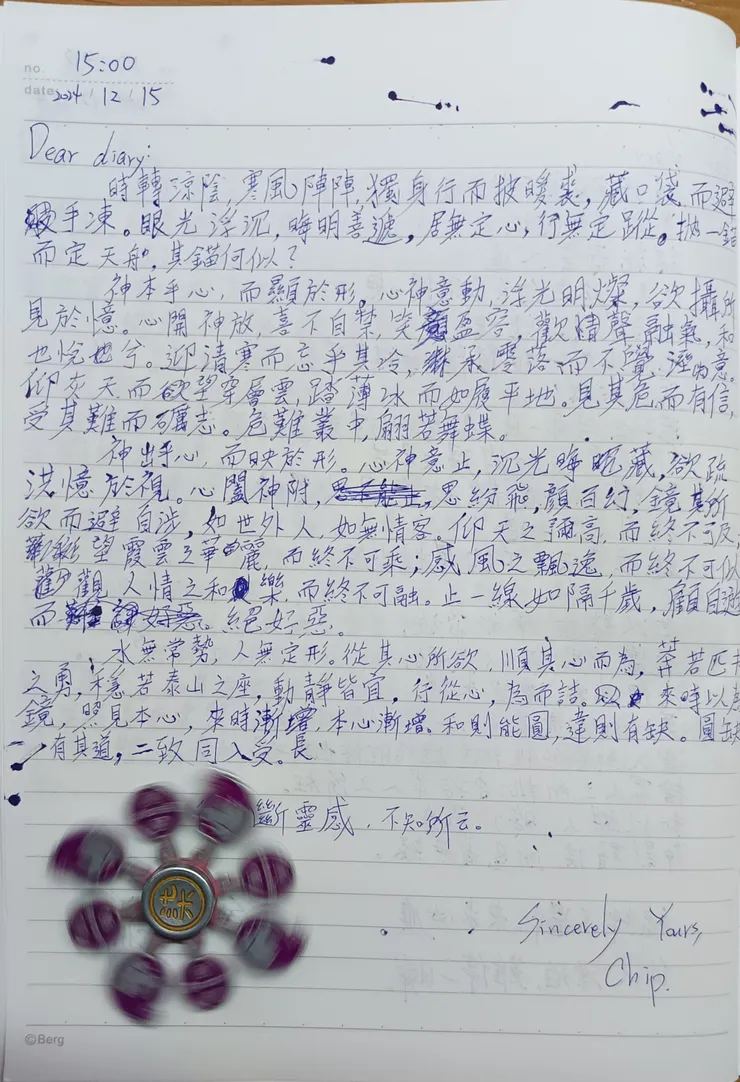 no. 15:00
date 2024/12/15
Dear diary:
時轉涼陰,寒風陣陣,獨身行而披暖裘,藏口袋而避
手凍。眼光浮沉,晦明善遞,居無定心,行無定蹤。拋一錨
而定天舟,其錨何似?
神本乎心,而顯於形。心神意動,浮光明燦,欲攝所
見於憶。心開神放,喜不自禁,笑盈容,歡情聲融氣,和
也悅也兮。迎清寒而忘乎其冷,承零落而不覺。
仰灰天而欲望穿層雲,踏薄冰而如履平地。見其危而有信,
受其難而礪志。危難叢中,翩若舞蝶。
神出乎心,而映於形。心神意止,沉光晦藏,欲疏
洪憶於視。心闔神附,思紛飛,顏百幻,鏡其所
欲而避自涉,如世外人,如無情客。仰天之彌高,而終不可及,
望霞雲之華麗,而終不可乘;感風之飄逸,而終不可似
觀人情之和樂,而終不可融。止一線如隔千歲,顧自遊
而絕好惡。
水無常勢,人無定形。從其心所欲,順其心而為,莽若匹夫
之勇,穩若泰山之座,動靜皆宜,行從心,為而詰。來時以為
鏡,照見本心,來時漸增,本心漸增。和則能圓,違則有缺。圓缺
有其道,二致同入受。長
斷靈感,不知所云。
Sincerely Yours,
Chip.
©Berg